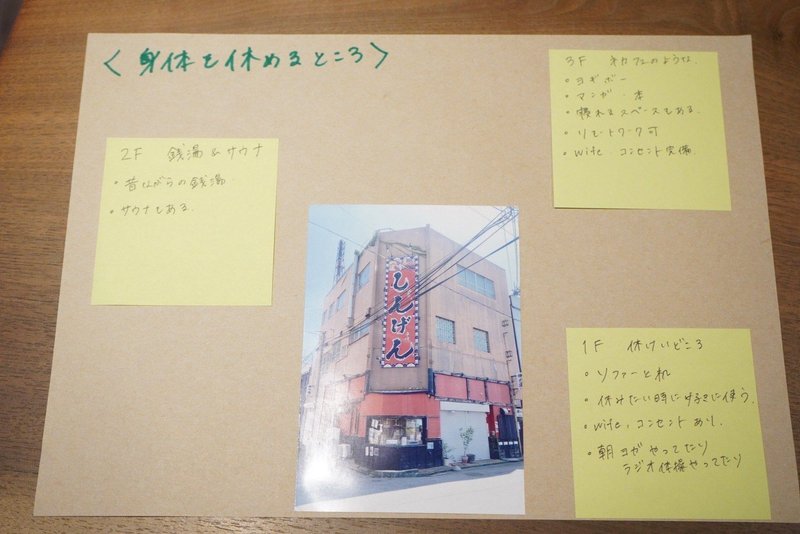 〈身体を休めるところ〉
2F 銭湯&サウナ
・昔ながらの銭湯.
・サウナもある.
3F ネカフェのような.
・ヨギボー
・マンガ・本
・寝れるスペースもある.
・リモートワーク可
・wife・コンセント完備.
しんげん
1F 休けいどころ
・ソファーと机
・休みたい時に好きに使う.
・wife、コンセントあり.
・朝ヨガやってたり
ラジオ体操やってたり